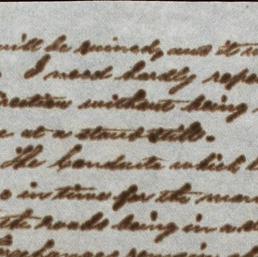 will be ruined, and it w
I need hardly repe
direction without being
at a stand still.
The Conduits which h
so in time for the man
the roads being in a
Exchanges remain